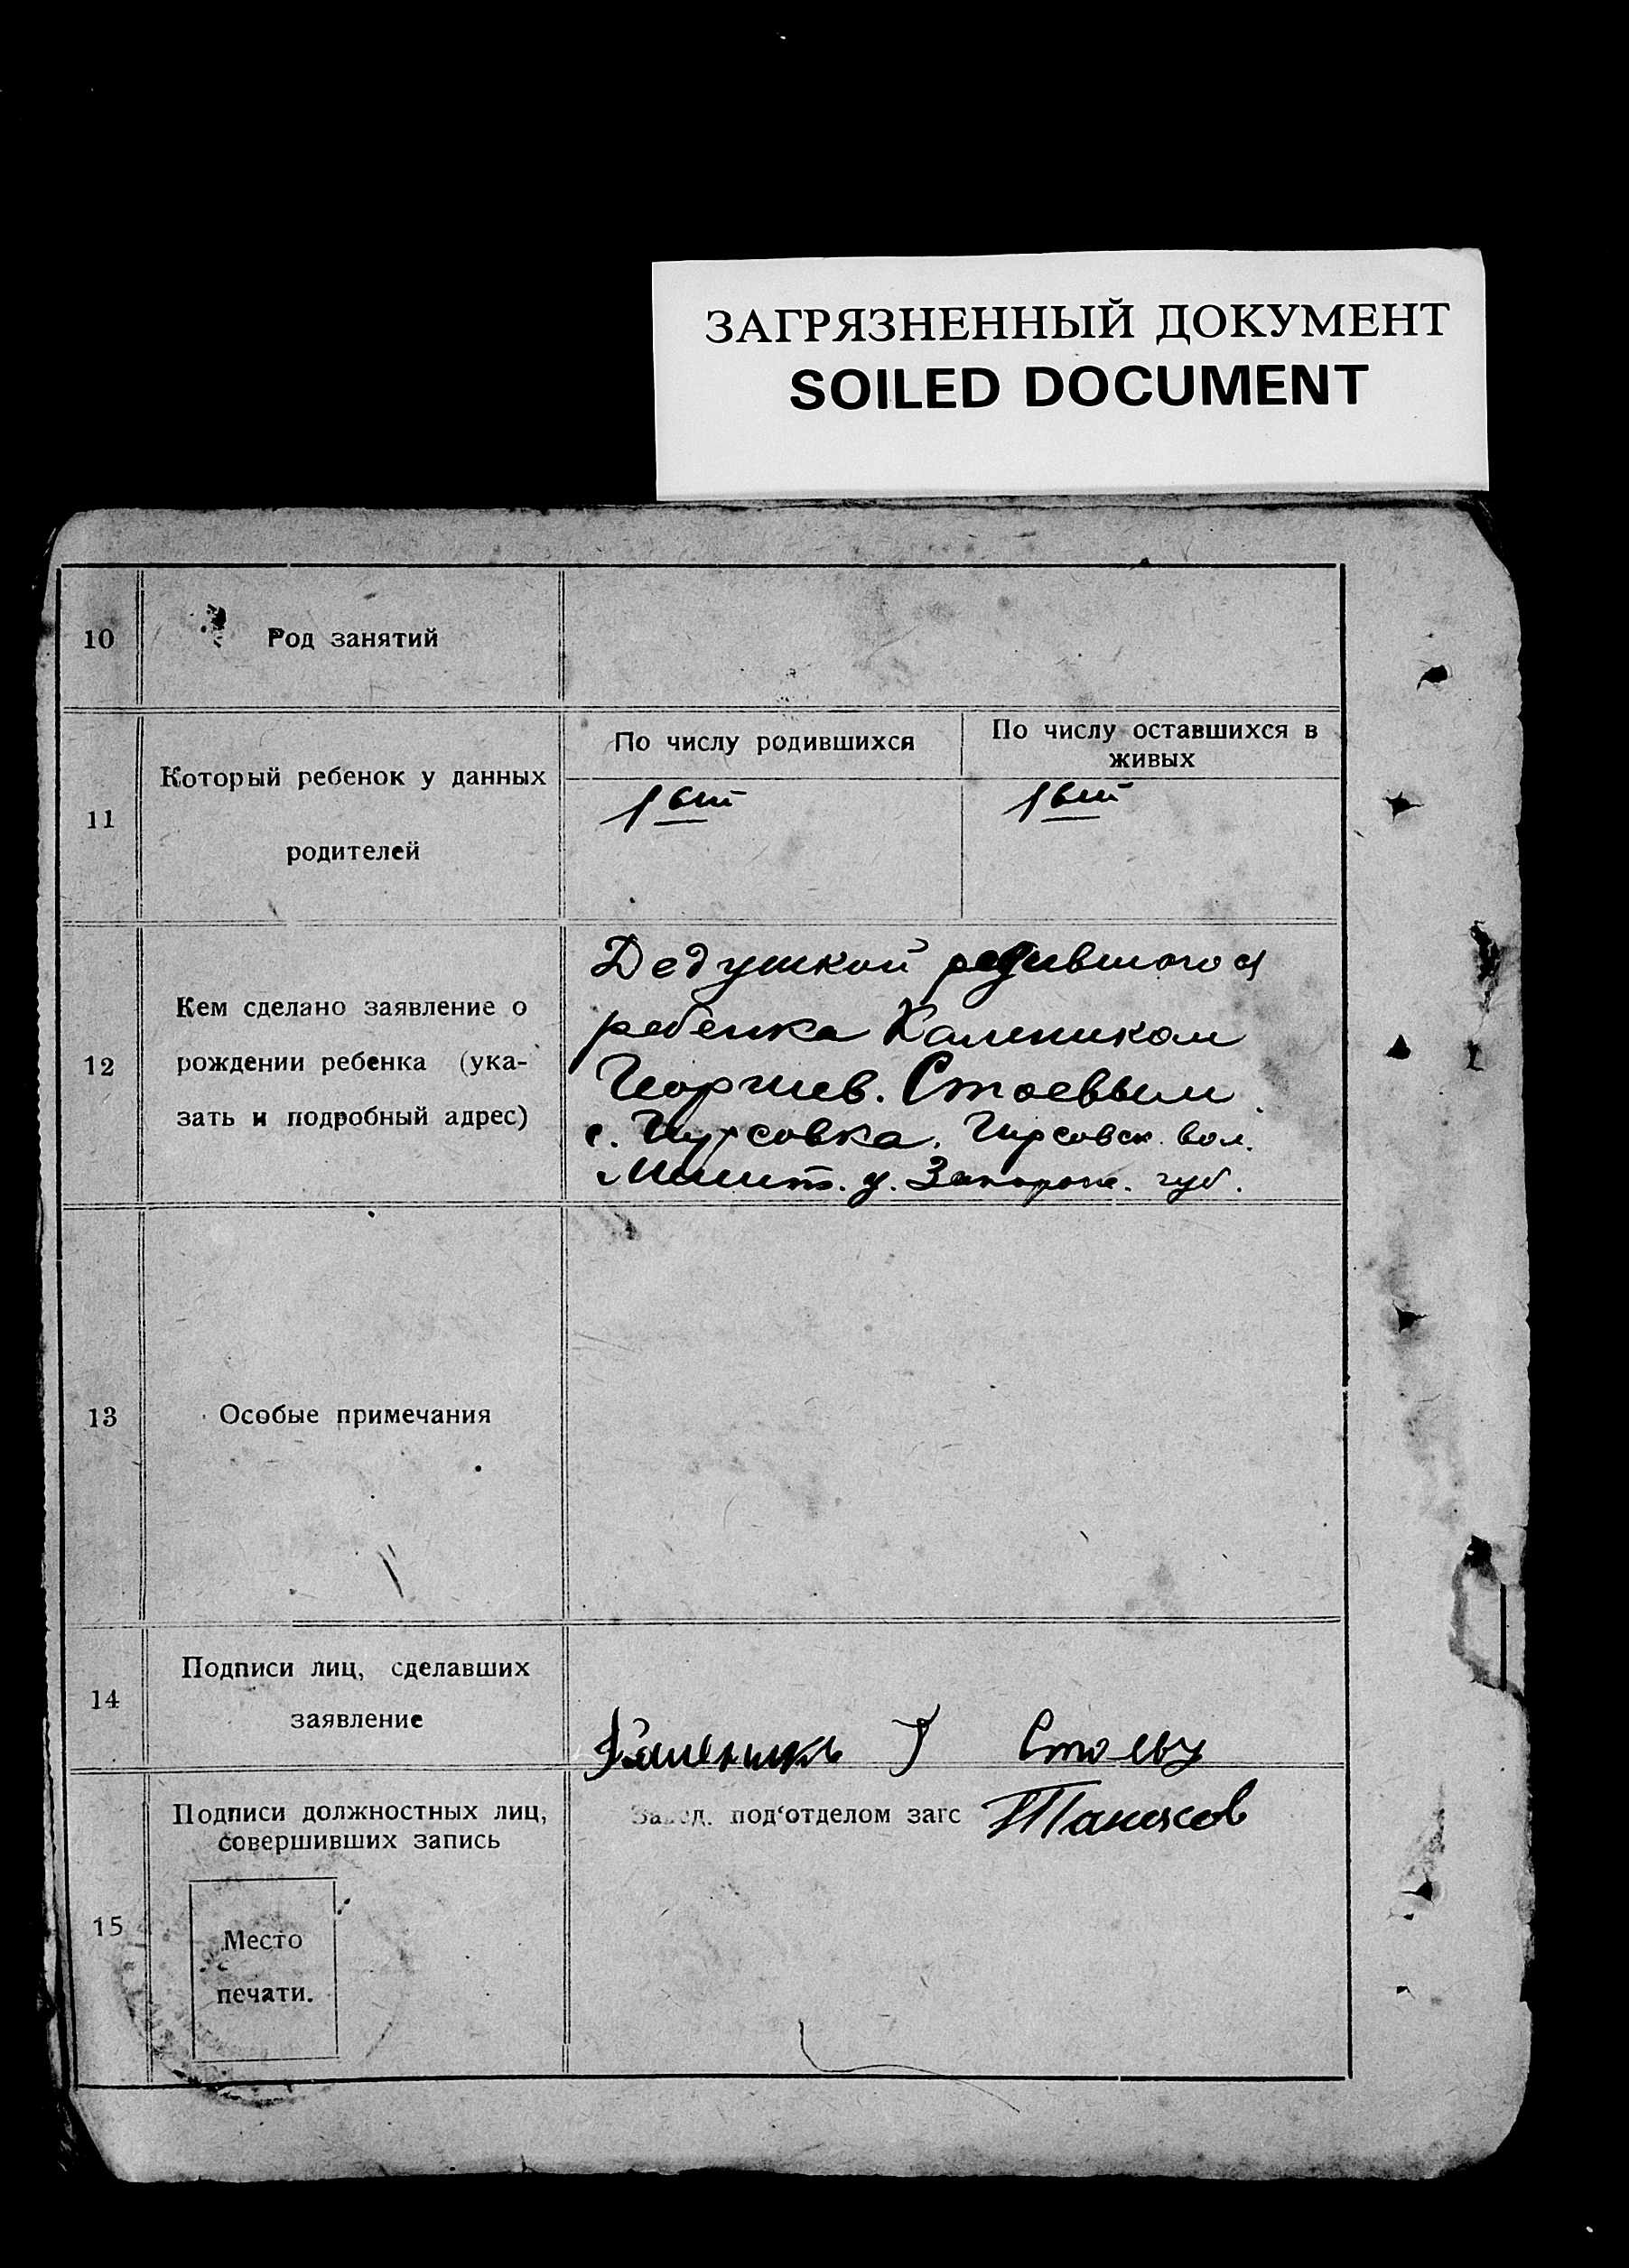 ЗАГРЯЗНЕННЫЙ ДОКУМЕНТ
SOILED DOCUMENT
10
Род занятий
11
Который ребенок у данных
родителей
По числу родившихся
По числу оставшихся в
живых
1 ый
1 ый
12
Кем сделано заявление о
рождении ребенка (ука-
зать и подробный адрес)
Дедушкой родившегося
ребенка
Георгиев. Стоевым
с. Гирсовка, Гирсовск. вол.
Мелит. у. Запорож. губ.
13
Особые примечания
14
Подписи лиц, сделавших
заявление
Г Стоевъ
15
Подписи должностных лиц,
совершивших запись
Место
печати.
Завед. под'отделом загс